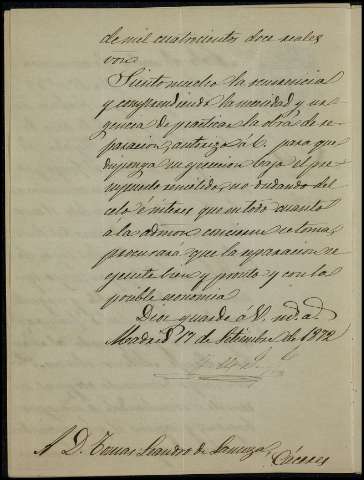 de mil cuatrocientos doce reales
von
Siento mucho la ocurrencia
y comprendiendo la necesidad y ur-
gencia de practicar la obra de re-
paracion, autorizo á V. para que
disponga su ejecucion bajo el pre-
supuesto remitido, no dudando del
celo é interes que en todo cuanto
á la admon concierne se toma,
procurará que la reparacion se
ejecute bien y pronto y con la
posible economia
Dios guarde á V. ms. as.
Madrid 17 de Setiembre de 1872
A D. Tomas Leandro de
Cáceres